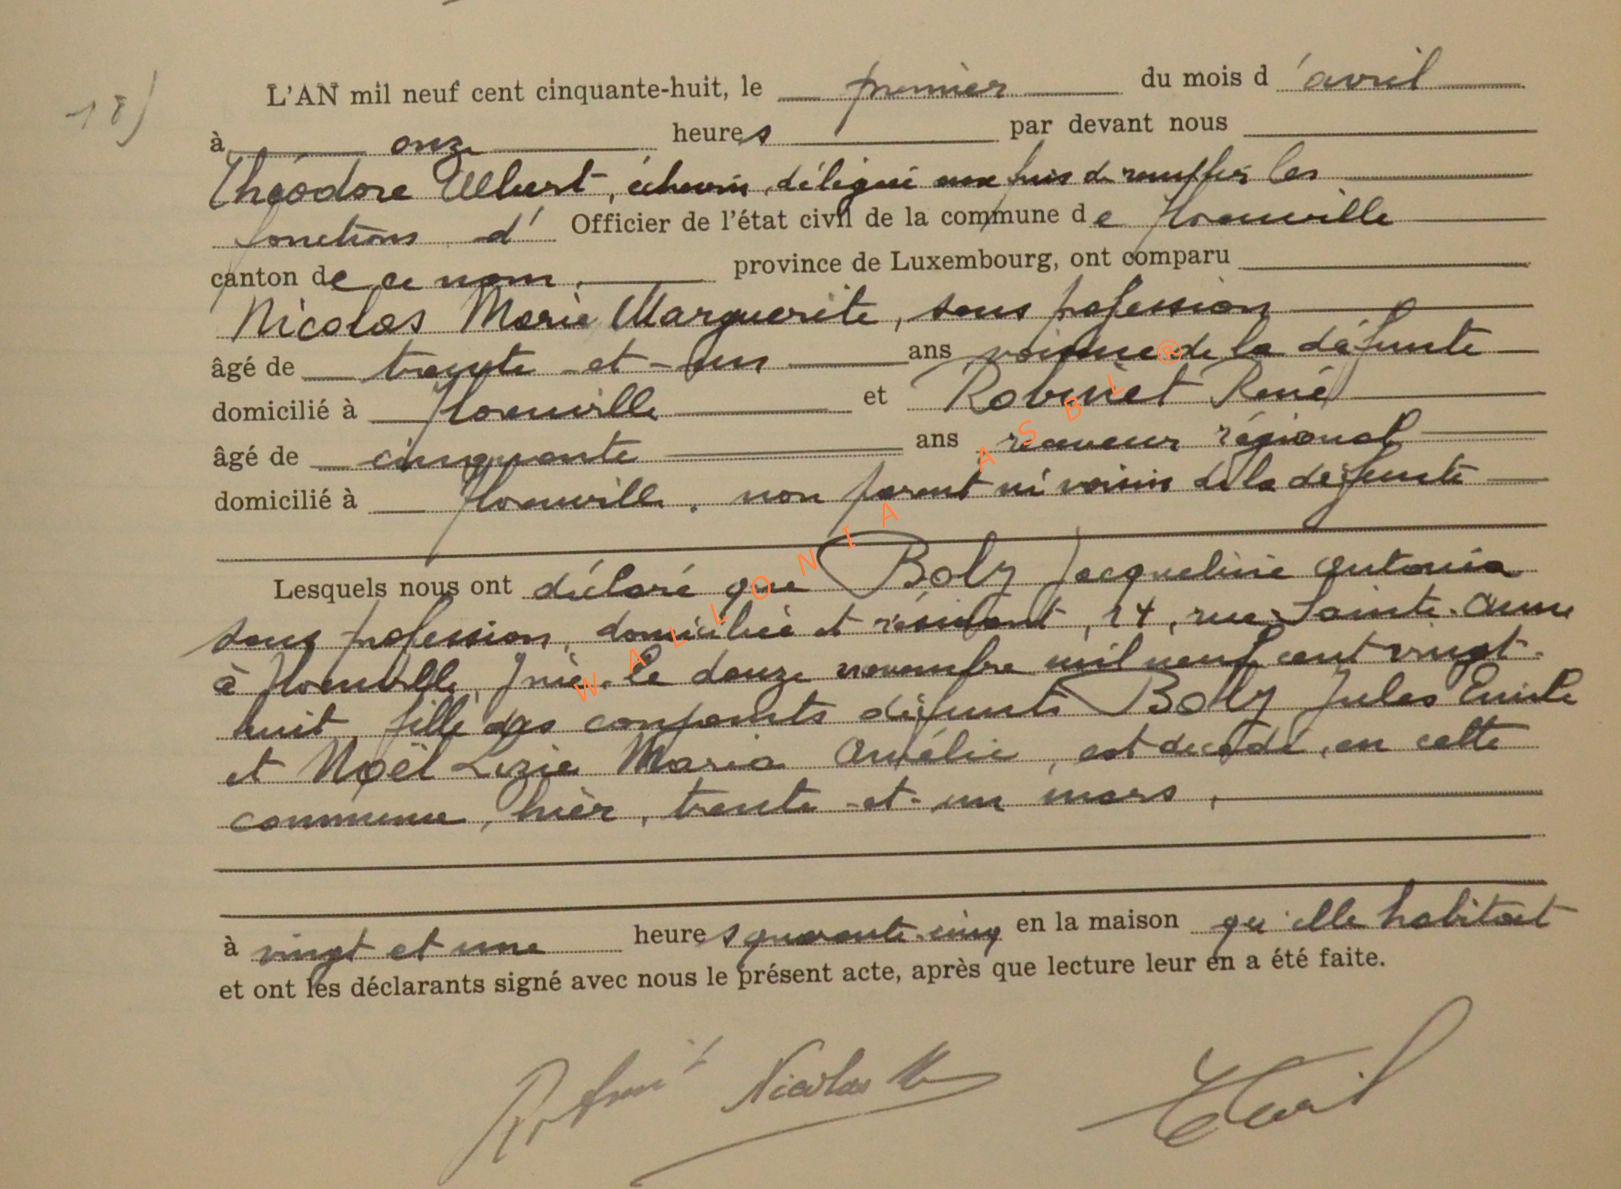 18)
L'AN mil neuf cent cinquante-huit, le premier du mois d'avril
à onze heures par devant nous
Théodore Albert, échevin, délégué aux fins de remplir les
fonctions d' Officier de l'état civil de la commune de Florenville
canton de ce nom, province de Luxembourg, ont comparu
Nicolas Marie Marguerite, sans profession
âgé de trente-et-un ans voisine de la défunte
domicilié à Florenville et Robinet René
âgé de cinquante ans receveur régional
domicilié à Florenville, non parent ni voisin de la défunte
Lesquels nous ont déclaré que Boly Jacqueline Antonia
sans profession, domiciliée et résidant, 14, rue Sainte-Anne
à Florenville, née le douze novembre mil neuf cent vingt-
huit, fille des conjoints défunts Boly Jules Emile
et Noël Lizie Maria Amélie, est décédé, en cette
commune, hièr, trente-et-un mars,
à vingt et une heures quarante-cinq en la maison qu'elle habitait
et ont les déclarants signé avec nous le présent acte, après que lecture leur en a été faite.
Nicolas M
WALLONIA ASBL ®